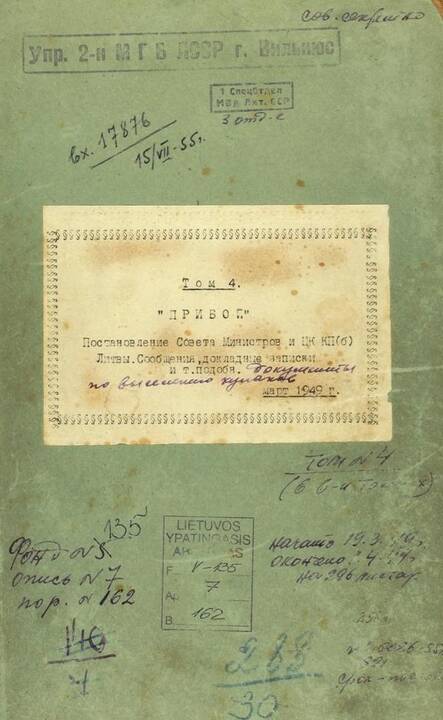 сов. секретно
Упр. 2-Н МГБ ЛССР г. Вильнюс
1 Спецотдел
МВД Лит. ССР
3 отд-е
Вх. 17876
15/VII-55г.
Том 4.
"ПРИБОЙ"
Постановление Совета Министров и ЦК КП(б)
Литвы. Сообщения, докладные записки
и т.подобн. Документы
по выселению кулаков
март 1949 г.
Том N 4
135
Фонд N
опись N 7
пор. N 162
LIETUVOS
YPATINGASIS
F. V-135
Ap. 7
B. 162
начато 19.3.
окончено 4.
на 296 листах
283
30